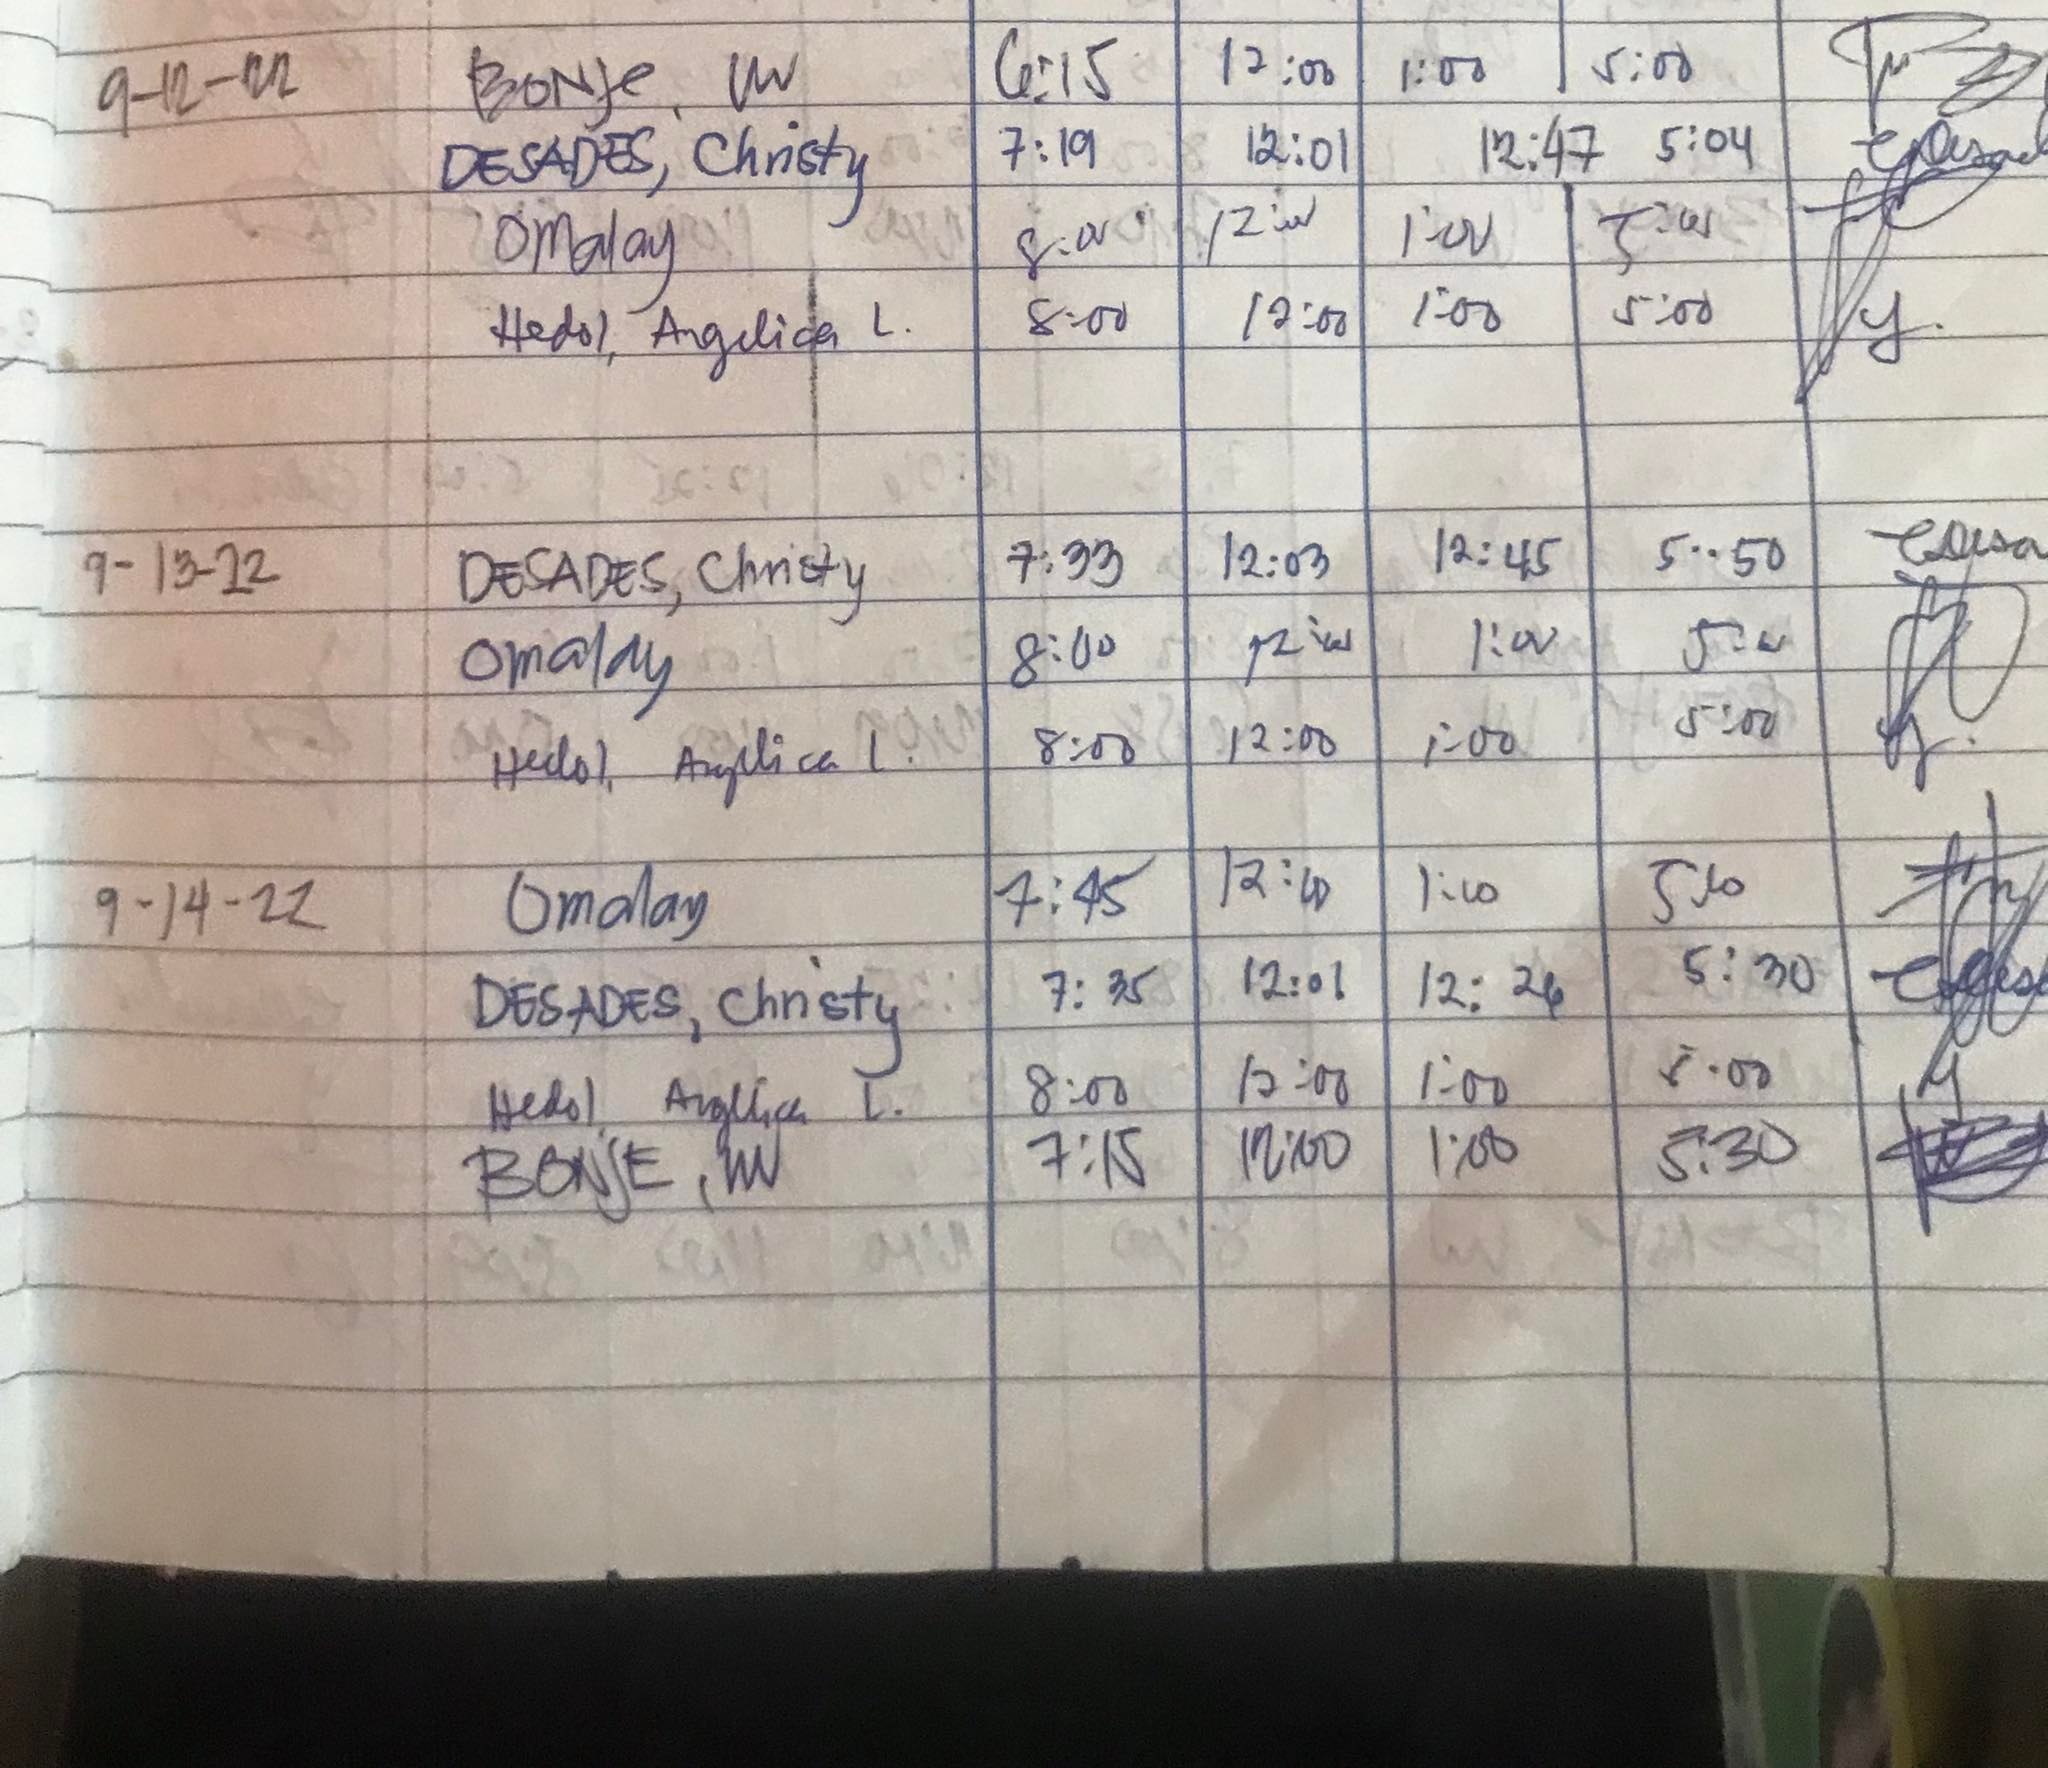 9-12-22 BONJE, W 6:15 12:00 1:00 5:00
DESADES, Christy 7:19 12:01 12:47 5:04
Omalay 8:00 12:00 1:00 5:00
Hedol, Angelica L. 8:00 12:00 1:00 5:00
9-13-22 DESADES, Christy 7:33 12:03 12:45 5:50
Omalay 8:00 12:00 1:00 5:00
Hedol, Angelica L. 8:00 12:00 1:00 5:00
9-14-22 Omalay 7:45 12:00 1:00 5:00
DESADES, Christy 7:35 12:01 12:26 5:30
Hedol, Angelica L. 8:00 12:00 1:00 5:00
BONJE, W 7:15 12:00 1:00 5:30